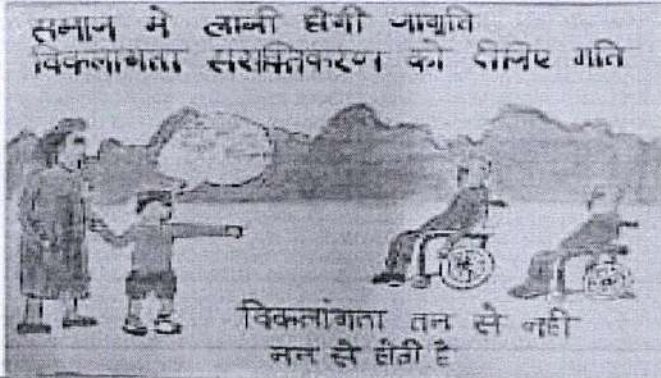 समाज मे लानी होगी जागृति
विकलांगता सशक्तिकरण को दीजिए गति
विकलांगता तन से नही
मन से होती है